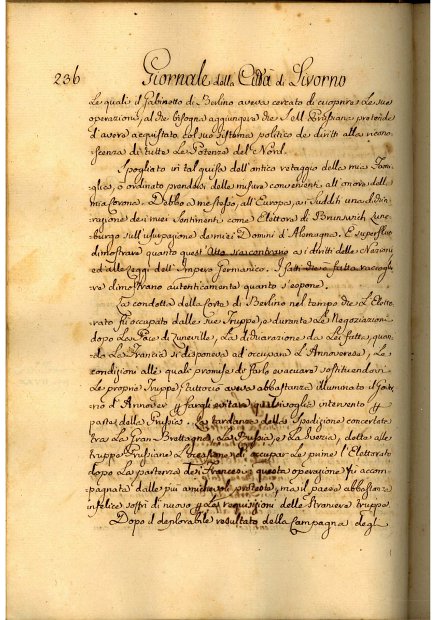 236 Giornale della Città di Livorno
Le quali il Gabinetto di Berlino aveva cercato di cuoprire le sue
operazioni, al che bisogna aggiungere che S. M. Prussiana pretende
d'avere acquistato col suo sistema politico de diritti alla ricono-
scenza di tutte Le Potenze del Nord.
Spogliato in tal guisa dell'antico retaggio della mia Fami-
glia, ò ordinato prendersi delle misure convenienti all'onore della
mia Corona. Debbo a me stesso, all'Europa, a i Sudditi una dichia-
razione de i miei Sentimenti come Elettore di Brunswich Lune-
burgo sull'usurpazione de miei Domini d'Alemagna. È superfluo
dimostrare quanto quest'Atto sia contrario a i diritti delle Nazioni
ed alle Leggi dell'Impero Germanico. I fatti
dimostrano autenticamente quanto s'espone.
La condotta della Corte di Berlino nel tempo che L'Eletto-
rato fù occupato dalle sue Truppe, e durante Le Negoziazioni
dopo La Pace di Luneville, La dichiarazione da Lei fatta, quan-
do La Francia si disponeva ad occupare L'Annoverese, Le
condizioni alle quali promise di farlo evacuare sostituendovi
Le proprie Truppe, tuttociò aveva abbastanza illuminato il Gov-
erno d'Annover p fargli evitare qualsivoglia intervento p
parte della Prussia. La tardanza della Spedizione concertata
tra La Gran Brettagna, La Russia, e La Svezia, dette alle
truppe Prussiane L'occasione di occupare Le prime l'Elettorato
dopo La partenza dei Francesi; questa operazione fù accom-
pagnata dalle più amichevoli proteste, ma il paese abbastanza
infelice soffrì di nuovo p Le requisizioni delle Straniere truppe.
Dopo il deplorabile resultato della Campagna degl'